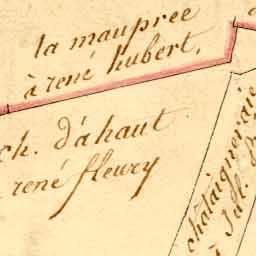 la maupree
à rené hubert.
ch. d'âhaut
rené fleury
chataigneraie
à Jul.